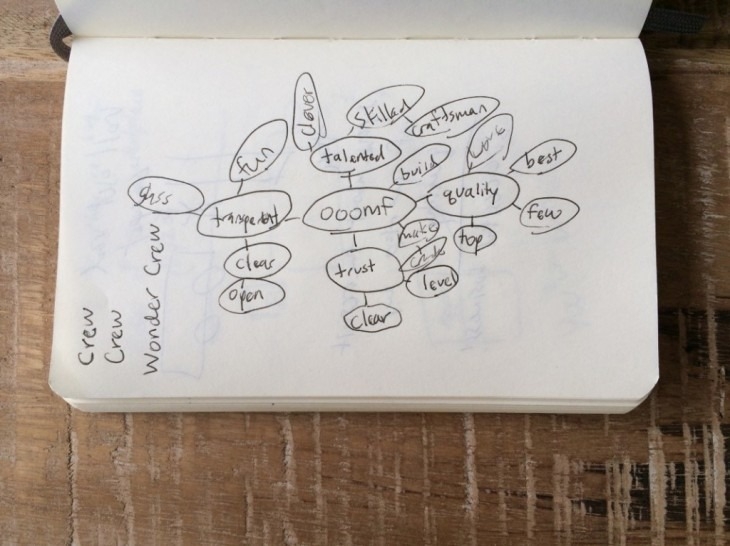 clever
skilled
craftsman
fun
talented
build
best
glass
transparent
ooomf
quality
few
make
top
clear
trust
open
level
clear
Crew
Crew
Wonder Crew